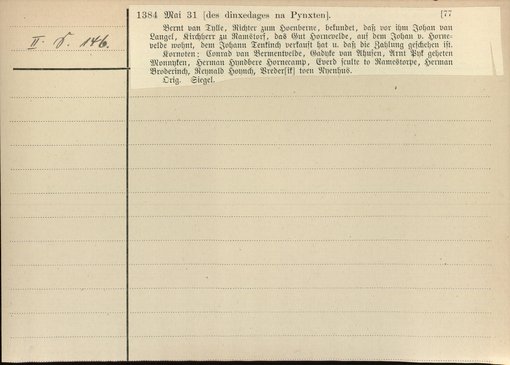 1384 Mai 31 [des dinxedages na Pynxten]. [77
II. S. 146.
Bernt van Tylle, Richter zum Hoenberne, bekundet, daß vor ihm Johan van
Langel, Kirchherr zu Ramstorf, das Gut Hornevelde, auf dem Johan v. Horne-
velde wohnt, dem Johann Tenkinch verkauft hat u. daß die Zahlung geschehen ist.
Kornoten: Conrad van Bermentvelde, Gadyke van Ahusen, Arnt Pyk geheten
Monnyken, Herman Hundbere Hornecamp, Everd sculte to Ramestorpe, Herman
Broderinch, Reynald Hoynch, Vrederi[k] toen Nyenhus.
Orig. Siegel.